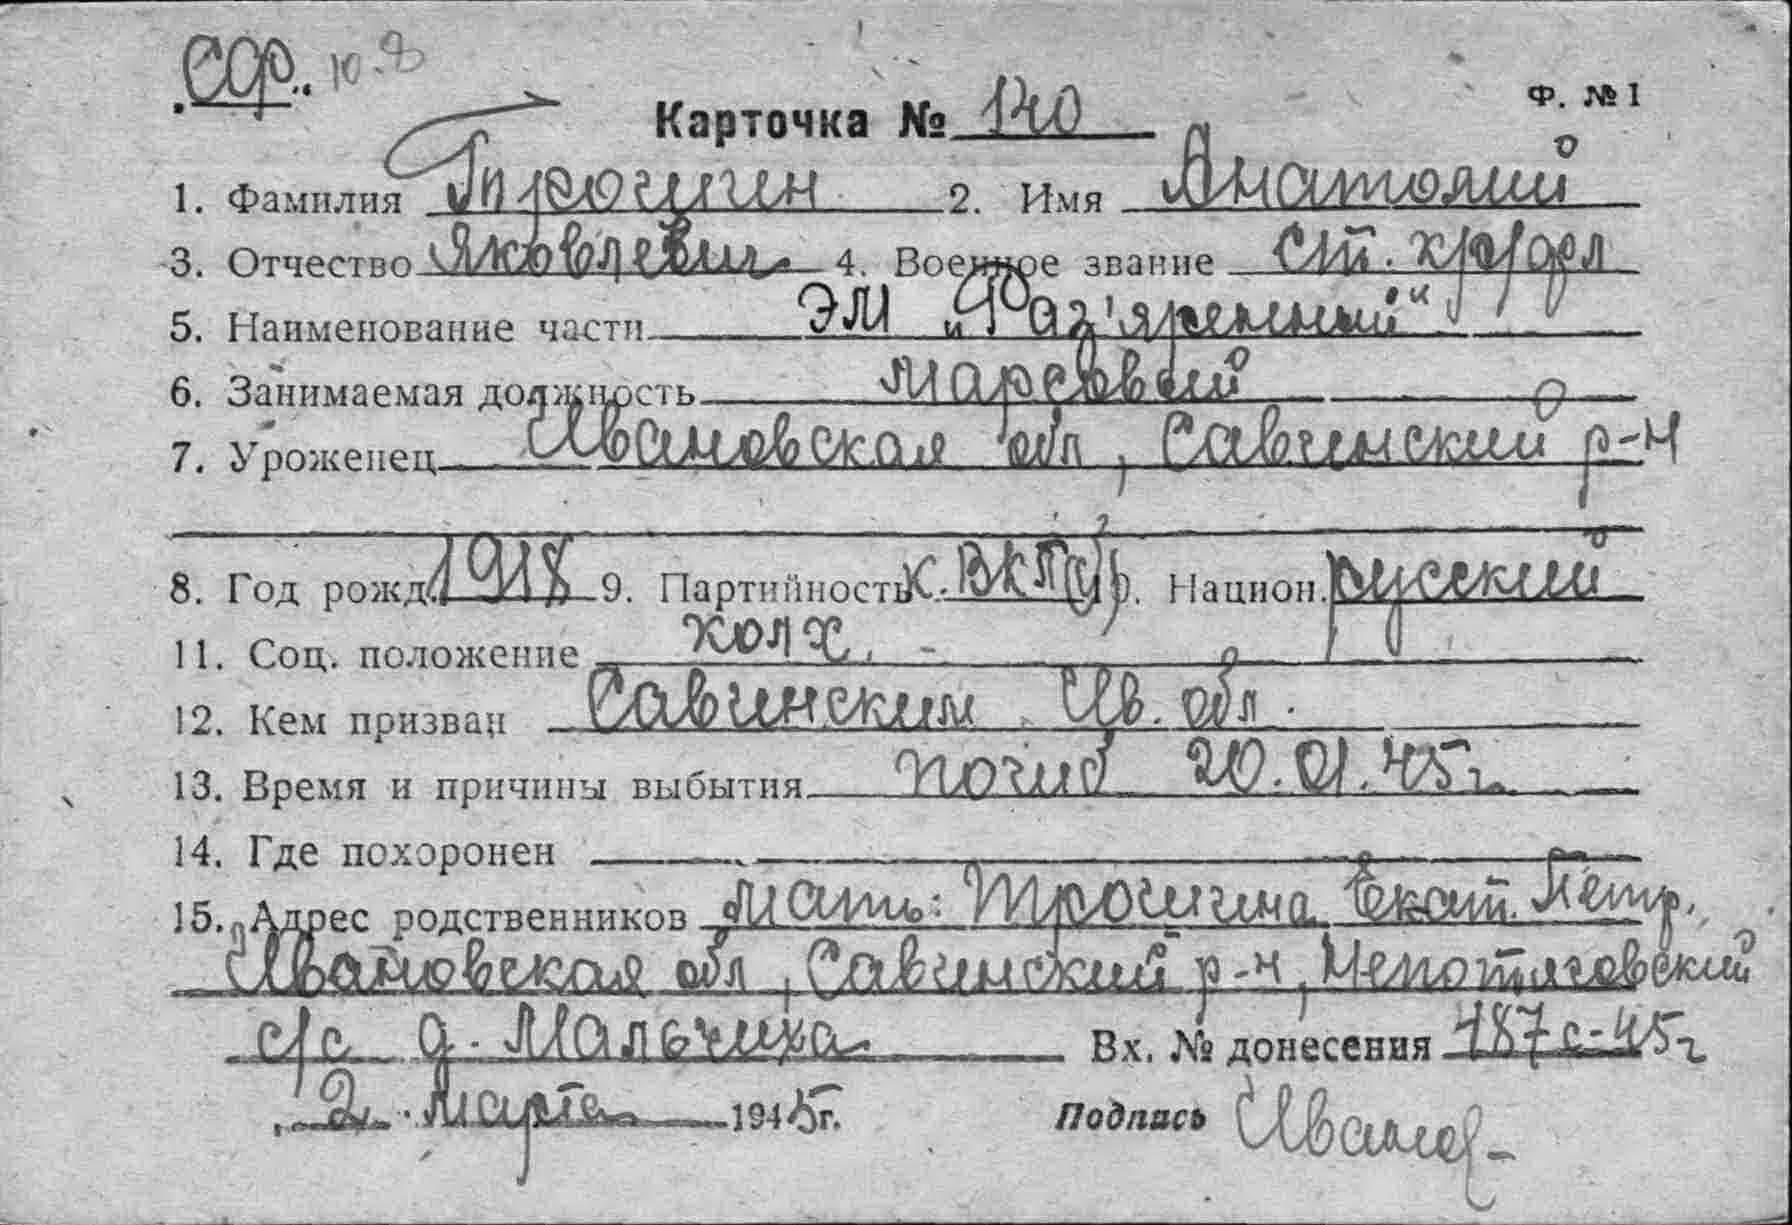 СФ.. 10.8
Ф. №1
Карточка № 140
1. Фамилия Трошин 2. Имя Анатолий
3. Отчество Яковлевич 4. Военное звание ст. кр/фл
5. Наименование части ЭМ „Раз'яренный"
6. Занимаемая должность марсовый
7. Уроженец Ивановская обл, Савинский р-н
8. Год рожд. 1918 9. Партийность к. ВКП(б) 10. Национ. русский
11. Соц. положение колх.
12. Кем призван Савинским Ив. обл.
13. Время и причины выбытия погиб 20.01.45г.
14. Где похоронен
15. Адрес родственников Мать: Трошина Екат. Петр.
Ивановская обл, Савинский р-н, Непотяговский
с/с д. Мальчиха Вх. № донесения 487с-45г
2. марта 1945г. Подпись Иванов